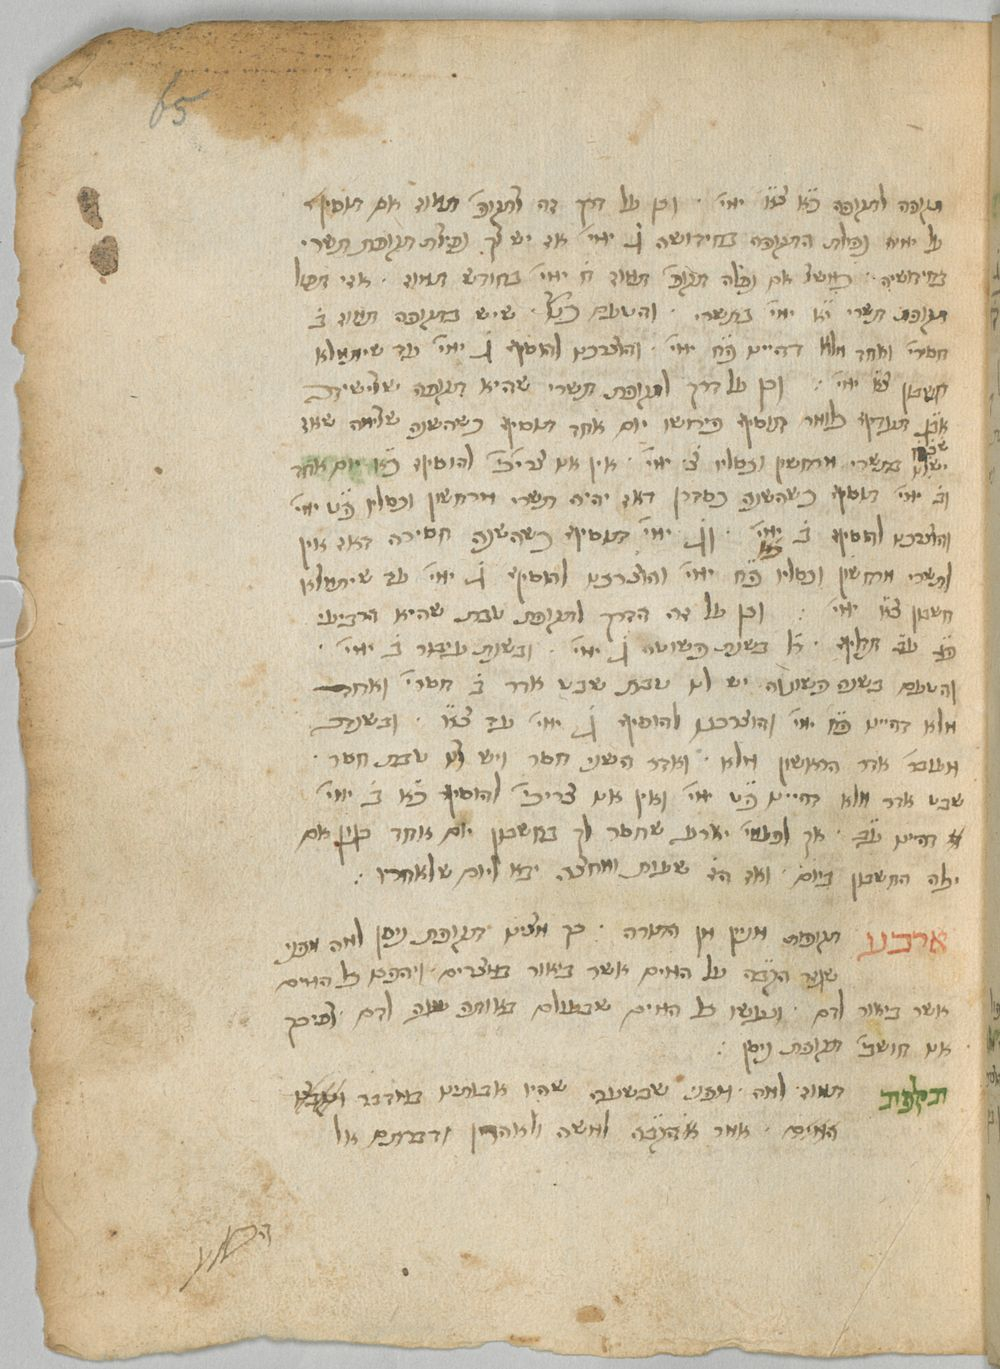 65
תקופה לתקופה צ״א ימי׳ · וכן על דרך זה לתקופ׳ תמוז אם תוסיף
על ימיה נפילת התקופה בחידושיה ג׳ ימי׳ אז יש לך נפילת תקופת תשרי
בחידושיה · כמשל אם נפלה תקופ׳ תמוז ח׳ ימי׳ בחודש תמוז · אזי תפול
תקופת תשרי י״א ימי׳ בתשרי · והטעם כמו׳ · שיש בתקופה תמוז ב׳
חסרי׳ ואחד מלא דהיינו פ״ח ימי׳ · והוצרכנו להוסיף ג׳ ימי׳ עד שיתמלא
חשבון צ״א ימי׳ : וכן על דרך לתקופת תשרי שהיא תקופה שלישית
תעדיף כלומר תוסיף בחידושו יום אחד תוסיף כשהשנה שלימה שאז
יש לנו בתשרי מרחשון וכסליו צ׳ ימי׳ · אין אנו צריכי׳ להוסיף כ״א יום אחד
וב׳ ימי׳ תוסיף כשהשנה כסדרן דאז יהיה תשרי מרחשון וכסליו פ״ט ימי׳
והוצרכנו להוסיף ב׳ ימי׳ · וג׳ ימי׳ תוסיף כשהשנה חסירה דאז אין
לתשרי מרחשון וכסליו פ״ח ימי׳ והוצרכנו להוסיף ג׳ ימי׳ עד שיתמלא
חשבון צ״א ימי׳ : וכן על זה הדרך לתקופת טבת שהיא הרביעי
בשנת פשוטה ג׳ ימי׳ · ובשנת עיבור ב׳ ימי׳ ·
והטעם בשנה פשוטה יש לנו טבת שבט אדר ב׳ חסרי׳ ואחד
מלא דהיינו פ״ח ימי׳ והוצרכנו להוסיף ג׳ ימי׳ עד צ״א · ובשנת
מעובר׳ אדר הראשון מלא · ואדר השני חסר ויש לנו טבת חסר ·
שבט אדר מלא דהיינו פ״ט ימי׳ ואין אנו צריכי׳ להוסיף כ״א ב׳ ימי׳
דהיינו · אך לפעמי׳ יארע שחסר לך בחשבון יום אחד כגון אם
יכלה החשבון ביום · ואז הז׳ שעות ומחצה יבא ליום שלאחריו :
ארבע תקופות מניין מן התורה · כך מצינו תקופת ניסן למה מפני
שנא׳ הקב״ה על המים אשר ביאור במצרים · ויהפכו כל המים
אשר ביאור לדם · ונעשו כל המים שבעולם באותה שעה לדם · לפיכך
אנו חושבי׳ תקופת ניסן :
תקופת תמוז למה · מפני שבשעה שהיו אבותינו במדבר
המים · אמר הקב״ה למשה ולאהרן ודברתם אל
הסלע